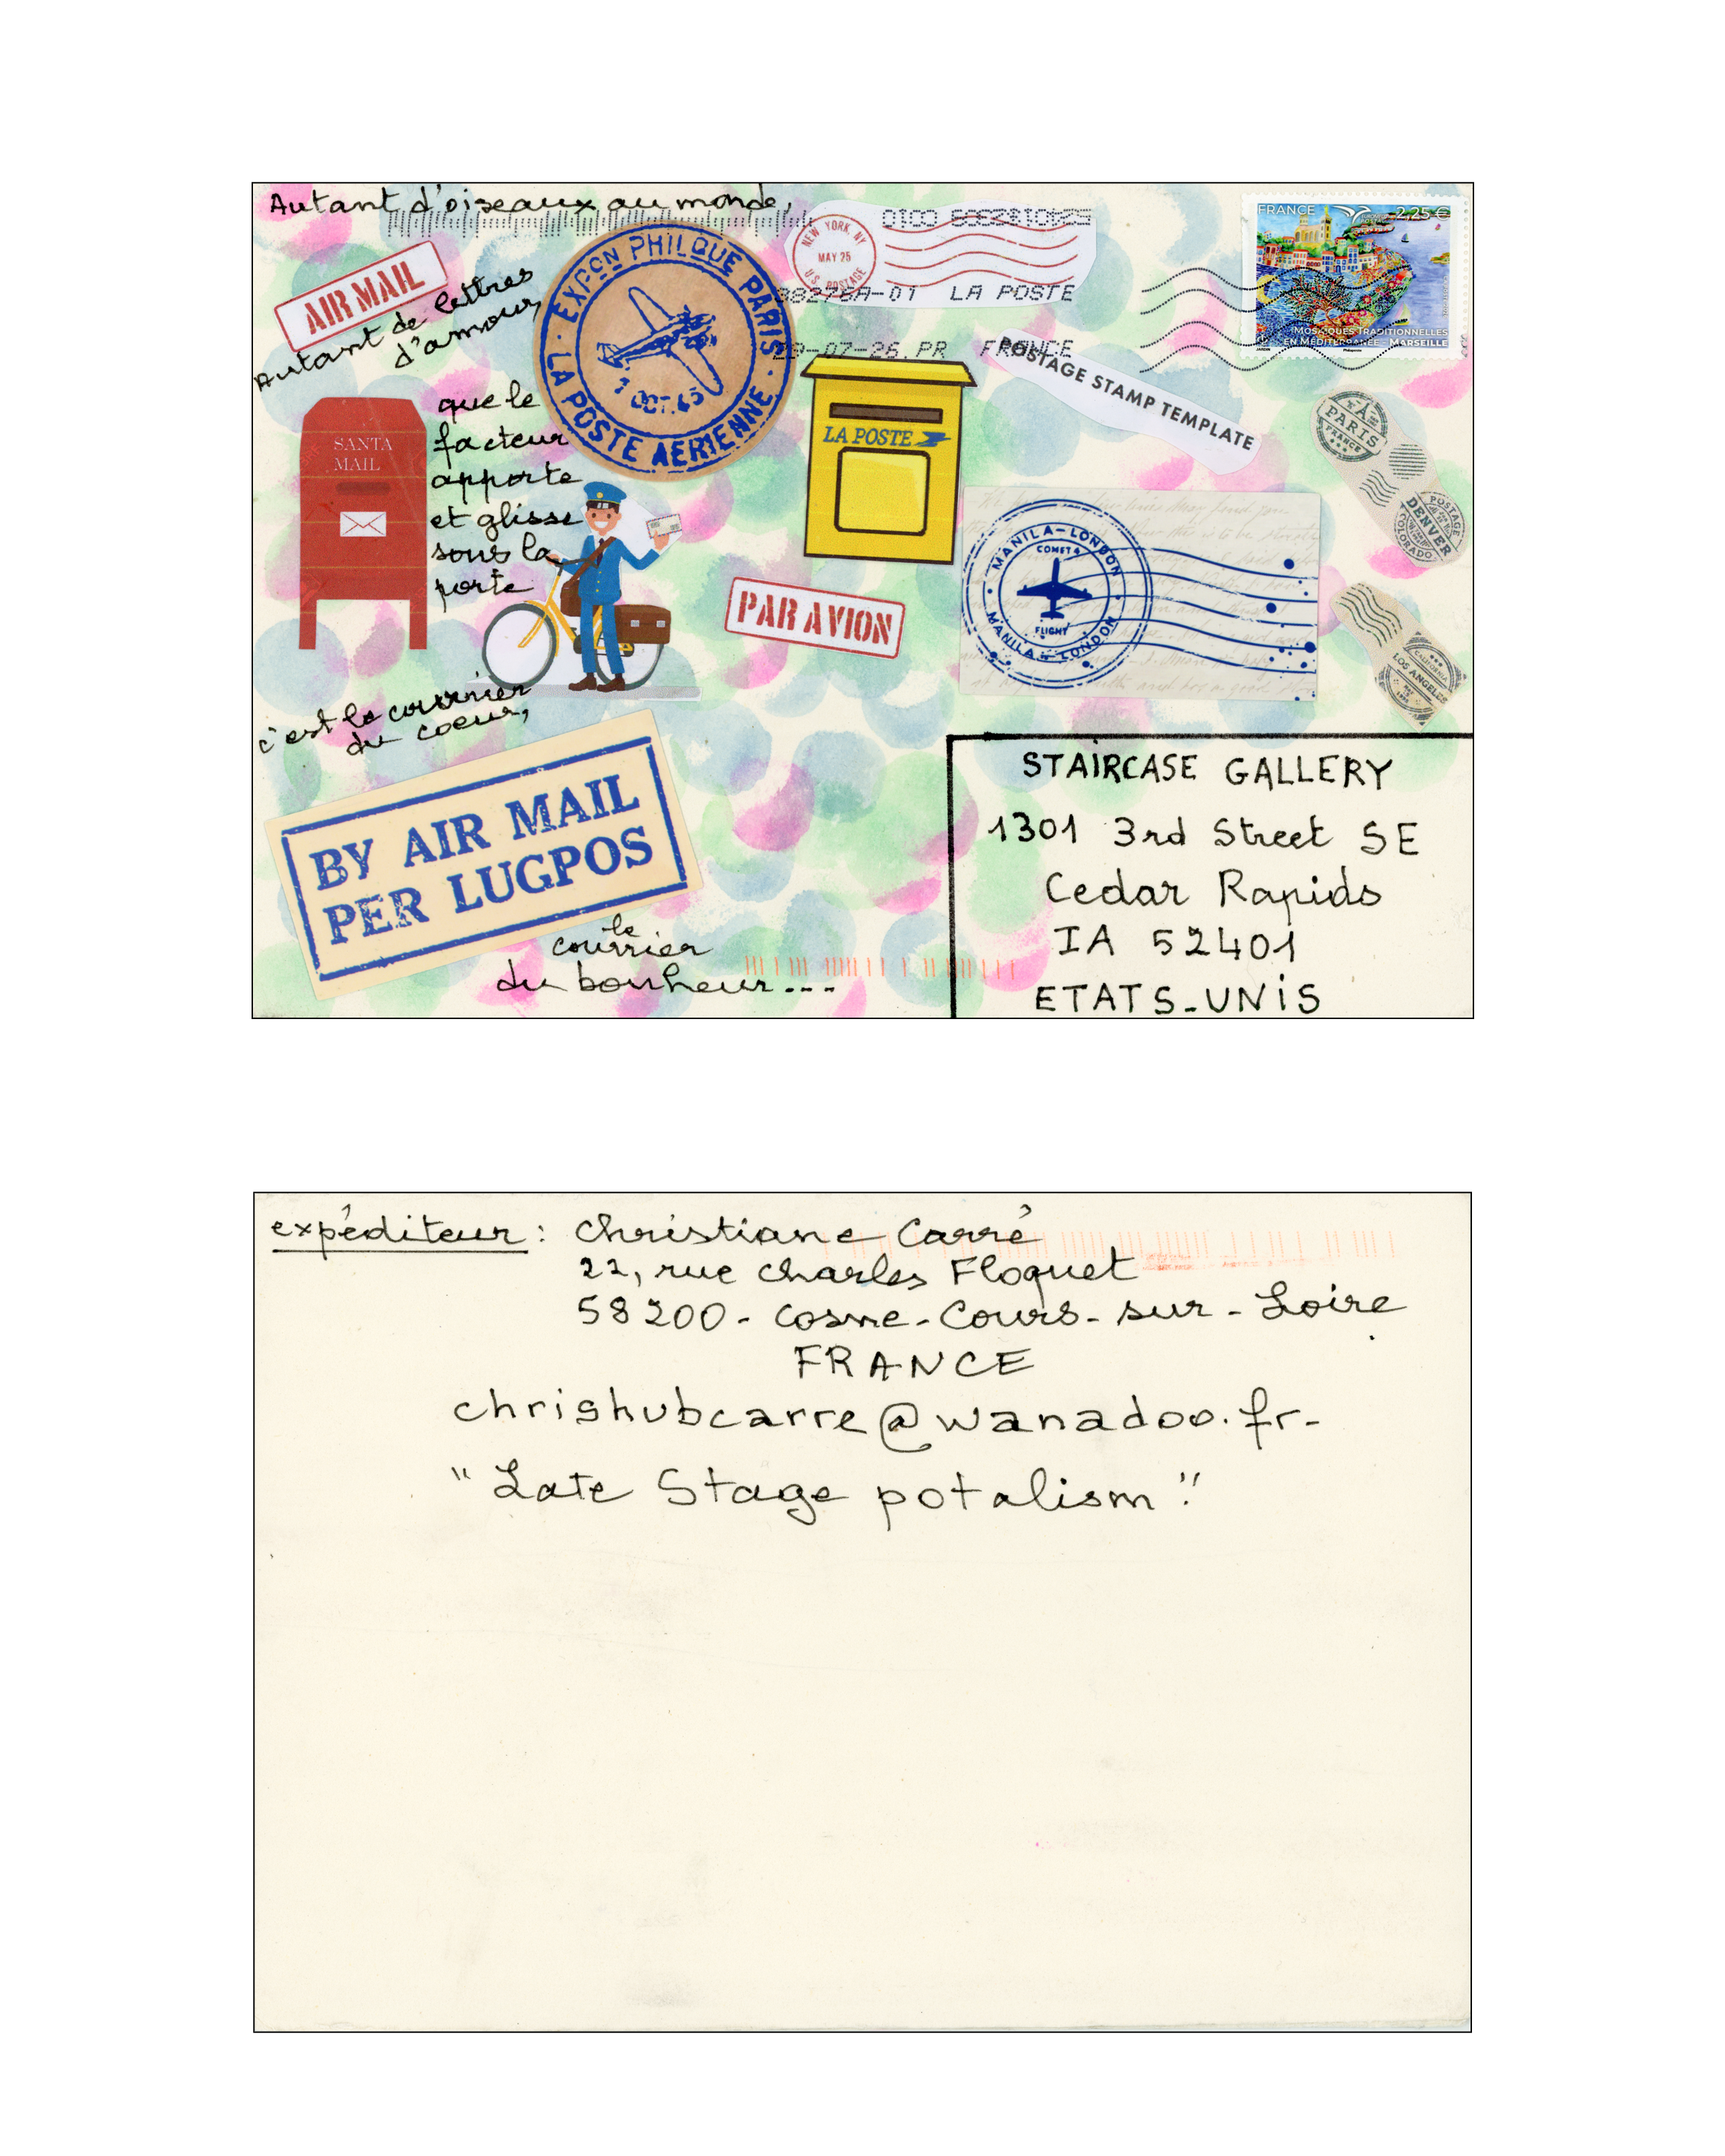 Autant d'oiseaux au monde,
AIR MAIL
Autant de lettres
d'amour,
que le
facteur
apporte
et glisse
sous la
porte
SANTA
MAIL
EXPON PHILQUE PARIS
LA POSTE AERIENNE
NEW YORK, NY
MAY 25
U.S. POSTAGE
LA POSTE
FRANCE
FRANCE 2,25 €
MOSAÏQUES TRADITIONNELLES
EN MÉDITERRANÉE - MARSEILLE
POSTAGE STAMP TEMPLATE
LA POSTE
PARIS
FRANCE
POSTAGE
DENVER
COLORADO
MANILA-LONDON
COMET 4
FLIGHT
MANILA - LONDON
PAR AVION
CALIFORNIA
LOS ANGELES
c'est le courrier
du coeur,
BY AIR MAIL
PER LUGPOS
le
courrier
du bonheur...
STAIRCASE GALLERY
1301 3rd Street SE
Cedar Rapids
IA 52401
ETATS-UNIS
expéditeur : Christiane Carré
22, rue Charles Floquet
58200 - Cosne - Cours - sur - Loire
FRANCE
chrishubcarre@wanadoo.fr-
"Late Stage potalism"